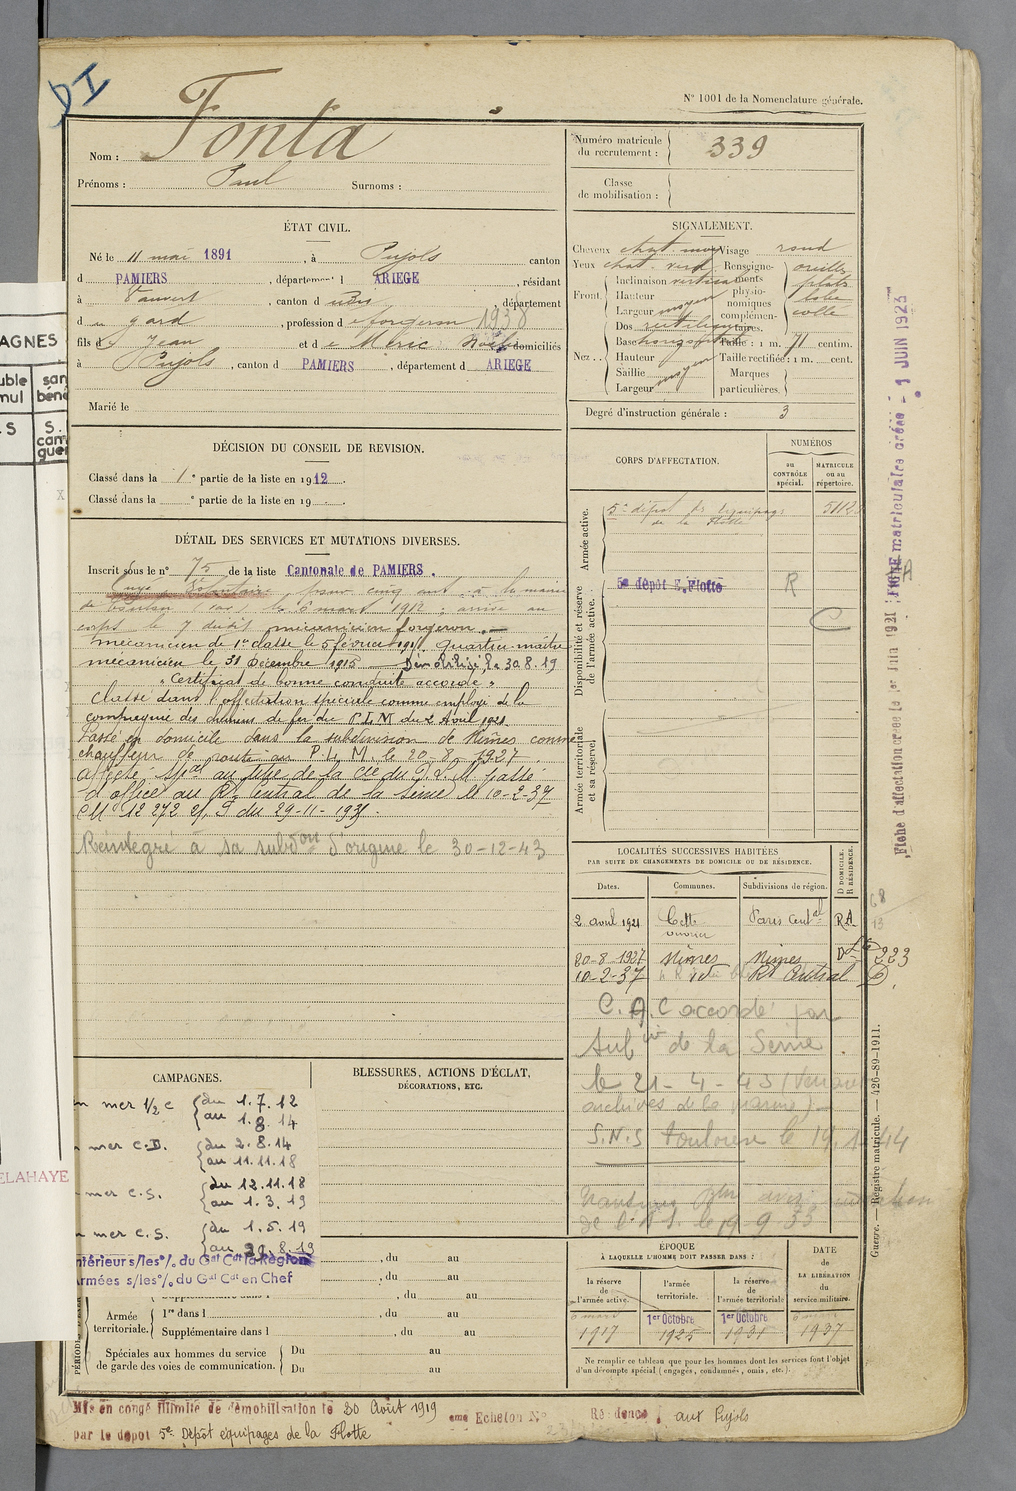 DI
N° 1001 de la Nomenclature générale.
Nom : Fonta
Prénoms : Paul Surnoms :
Numéro matricule du recrutement : 339
Classe de mobilisation :
ÉTAT CIVIL.
Né le 11 mai 1891, à Pujols canton
d PAMIERS, département d ARIEGE, résidant
à Vauvert, canton d , département
d u gard, profession de forgeron 1938
fils de Jean et de Méric domiciliés
à Pujols, canton d PAMIERS, département d ARIEGE
Marié le
SIGNALEMENT.
Cheveux chat. Visage rond
Yeux chat. verd. Renseignements physionomiques complémentaires. oreilles plates lobe collé
Front. Inclinaison verticale
Hauteur
Largeur moyen
Nez. Dos rectiligne
Base horizontal Taille : 1 m. 71 centim.
Hauteur moyen Taille rectifiée : 1 m. cent.
Saillie Marques particulières.
Largeur moyen
Degré d'instruction générale : 3
DÉCISION DU CONSEIL DE REVISION.
Classé dans la 1e partie de la liste en 1912.
Classé dans la e partie de la liste en 19 .
CORPS D'AFFECTATION.
NUMÉROS
au CONTRÔLE spécial.
MATRICULE ou au répertoire.
Armée active.
5e dépôt des équipages de la Flotte
Disponibilité et réserve de l'armée active.
5e depot E. Flotte R
C
Armée territoriale et sa réserve.
DÉTAIL DES SERVICES ET MUTATIONS DIVERSES.
Inscrit sous le n° 75 de la liste Cantonale de PAMIERS.
pour cinq ans à la mairie
de Toulon le 6 mars 1912 ; arrivé au
corps le 7 dudit mécanicien forgeron.
mécanicien de 1re classe le 5 février Quartier-maître
mécanicien le 31 Décembre 1915 Démobilisé le 30.8.19
"Certificat de bonne conduite accordé"
Classé dans l'affectation spéciale comme employé de la
compagnie des chemins de fer du P.L.M du 2 Avril 1921
Passé en domicile dans la subdivision de Nîmes comme
chauffeur de route au P. L. M. le 20-8-1927.
affecté spal au titre de la Cie du P. L. M. passé
d'office au Rt Central de la Seine le 10-2-37
du 29-11-193
Réintégré à sa subdon d'origine le 30-12-43
LOCALITÉS SUCCESSIVES HABITÉES
PAR SUITE DE CHANGEMENTS DE DOMICILE OU DE RÉSIDENCE.
Dates. Communes. Subdivisions de région. D DOMICILE. R RÉSIDENCE.
2 avril 1921 Cette Paris Central R.A.
20-8-1927 Nîmes Nîmes D 223
10-2-37 Rt Central D
C.A.C accordé par
de la Seine.
le 21-4-43
archives de la marine)
S.N.S Toulouse le 19.1.44
CAMPAGNES.
BLESSURES, ACTIONS D'ÉCLAT, DÉCORATIONS, ETC.
n mer 1/2 c du 1.7.12 au 1.8.14
n mer C.D. du 2.8.14 au 11.11.18
mer C.S. du 12.11.18 au 1.3.19
mer C.S. du 1.5.19 au 30.8.19
ntérieur s/les°/. du Gal Cdt la Région, du au
Armées s/les°/. du Gal Cdt en Chef, du au
Supplémentaire dans l , du au
Armée territoriale. 1re dans l , du au
Supplémentaire dans l , du au
Spéciales aux hommes du service de garde des voies de communication. Du au
Du au
ÉPOQUE
À LAQUELLE L'HOMME DOIT PASSER DANS :
DATE DE LA LIBÉRATION du service militaire.
la réserve de l'armée active.
l'armée territoriale.
la réserve de l'armée territoriale
6 mars 1917
1er Octobre 1925
1er Octobre 1931
1937
Ne remplir ce tableau que pour les hommes dont les services font l'objet
d'un décompte spécial (engagés, condamnés, omis, etc.).
Mis en congé illimité de démobilisation le 30 Août 1919 eme Echelon N° Résidence : aux Pujols
par le dépot 5e Dépôt équipages de la Flotte
Guerre. — Registre matricule. — 426-89-1911.
Fiche d'affectation créée le 1er Juin 1921
FICHE matriculaire créée - 1 JUIN 1923
AGNES
ELAHAYE